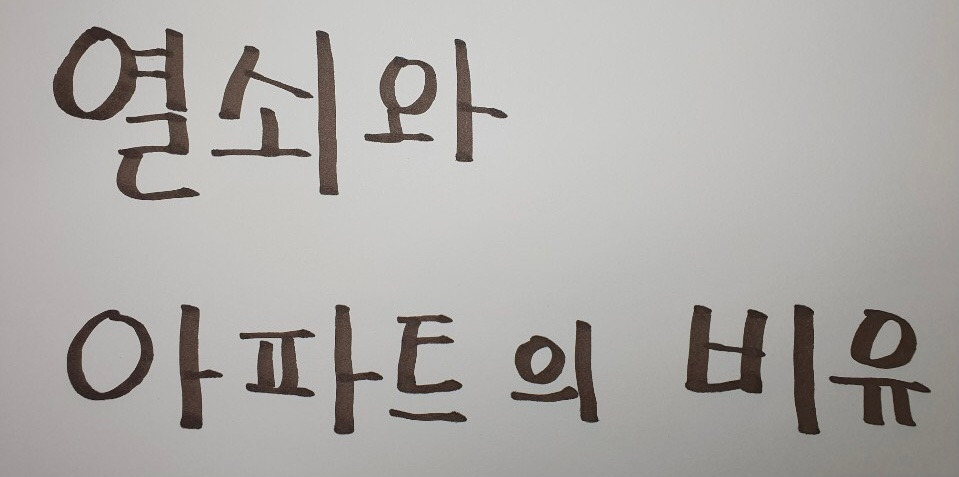 열쇠와
아파트의 비유